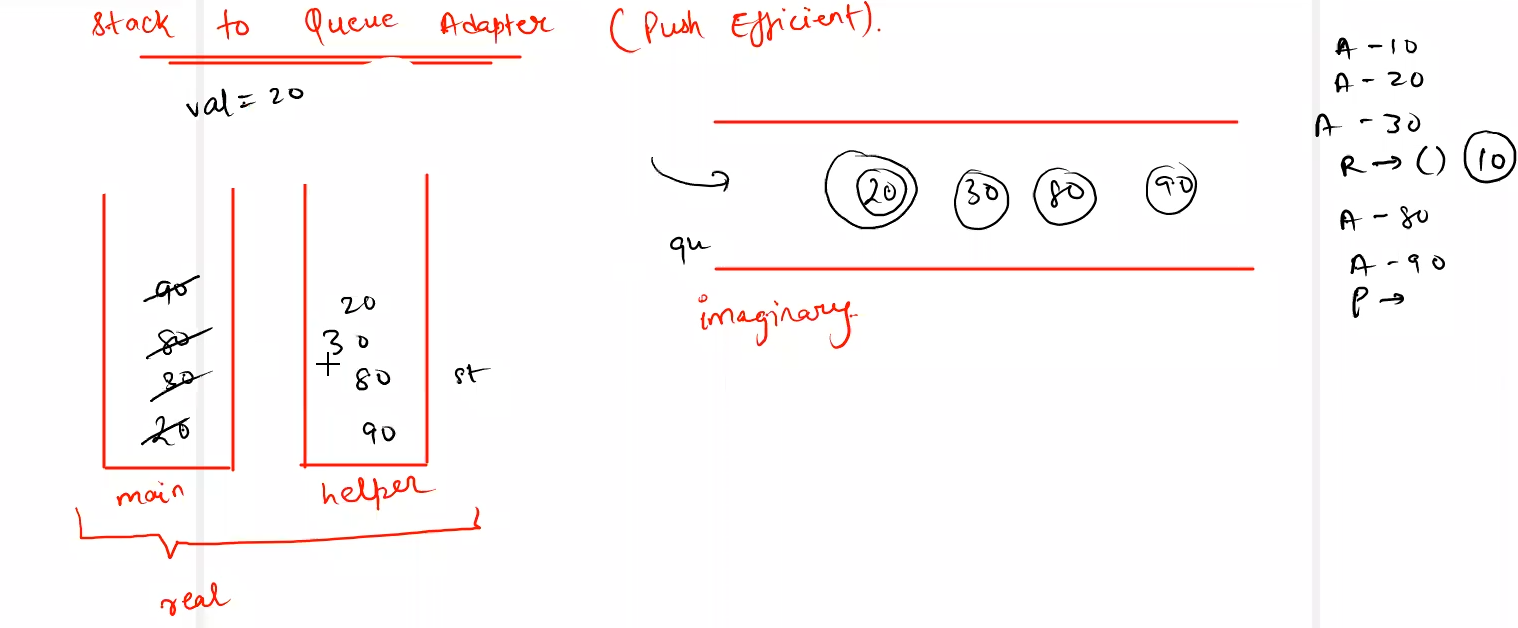 Stack to Queue Adapter (Push Efficient).
val = 20
90
80
30
20
main
20
30
80
90
helper
st
real
20 30 80 90
qu
imaginary
A - 10
A - 20
A - 30
R → () 10
A - 80
A - 90
P →